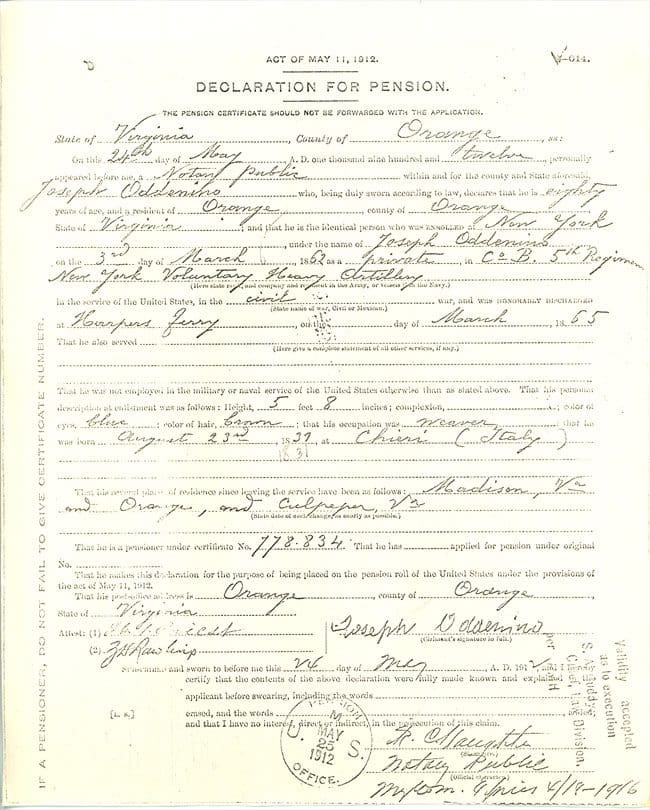 ACT OF MAY 11, 1912.
3-014.
DECLARATION FOR PENSION.
THE PENSION CERTIFICATE SHOULD NOT BE FORWARDED WITH THE APPLICATION.
State of Virginia, County of Orange, ss:
On this 24th day of May A. D. one thousand nine hundred and twelve, personally
appeared before me, a Notary Public within and for the county and State aforesaid,
Joseph Oddenino who, being duly sworn according to law, declares that he is eighty
years of age, and a resident of Orange, county of Orange
State of Virginia; and that he is the identical person who was ENROLLED at New York
under the name of Joseph Oddenino
on the 3rd day of March, 1862 as a private, in Co B. 5th Regimen
New York Voluntary Heavy Artillery
(Here state rank, and company and regiment in the Army, or vessels if in the Navy.)
in the service of the United States, in the civil war, and was HONORABLY DISCHARGED
(State name of war, Civil or Mexican.)
at Harpers Ferry, on the day of March, 1865
That he also served
(Here give a complete statement of all other services, if any.)
That he was not employed in the military or naval service of the United States otherwise than as stated above. That his personal
description at enlistment was as follows: Height, 5 feet 8 inches; complexion, ; color of
eyes, blue; color of hair, brown; that his occupation was weaver; that he
was born August 23rd, 1831, at Chieri (Italy)
1831
That his several places of residence since leaving the service have been as follows: Madison, Va
and Orange, and Culpeper, Va
(State date of each change, as nearly as possible.)
That he is a pensioner under certificate No. 778.834. That he has applied for pension under original
No.
That he makes this declaration for the purpose of being placed on the pension roll of the United States under the provisions of
the act of May 11, 1912.
That his post-office address is Orange, county of Orange,
State of Virginia
Attest: (1)
Joseph Oddenino
(Claimant's signature in full.)
(2)
Subscribed and sworn to before me this 24 day of May, A. D. 1912, and I hereby
certify that the contents of the above declaration were fully made known and explained to the
applicant before swearing, including the words
[L. S.]
erased, and the words added;
and that I have no interest, direct or indirect, in the prosecution of this claim.
PENSION
U. S.
MAY
25
1912
OFFICE.
Notary Public
(Official character.)
My Com. Expires 4/18-1916
IF A PENSIONER, DO NOT FAIL TO GIVE CERTIFICATE NUMBER.
Validity accepted
as to execution
Chief, Law Division.